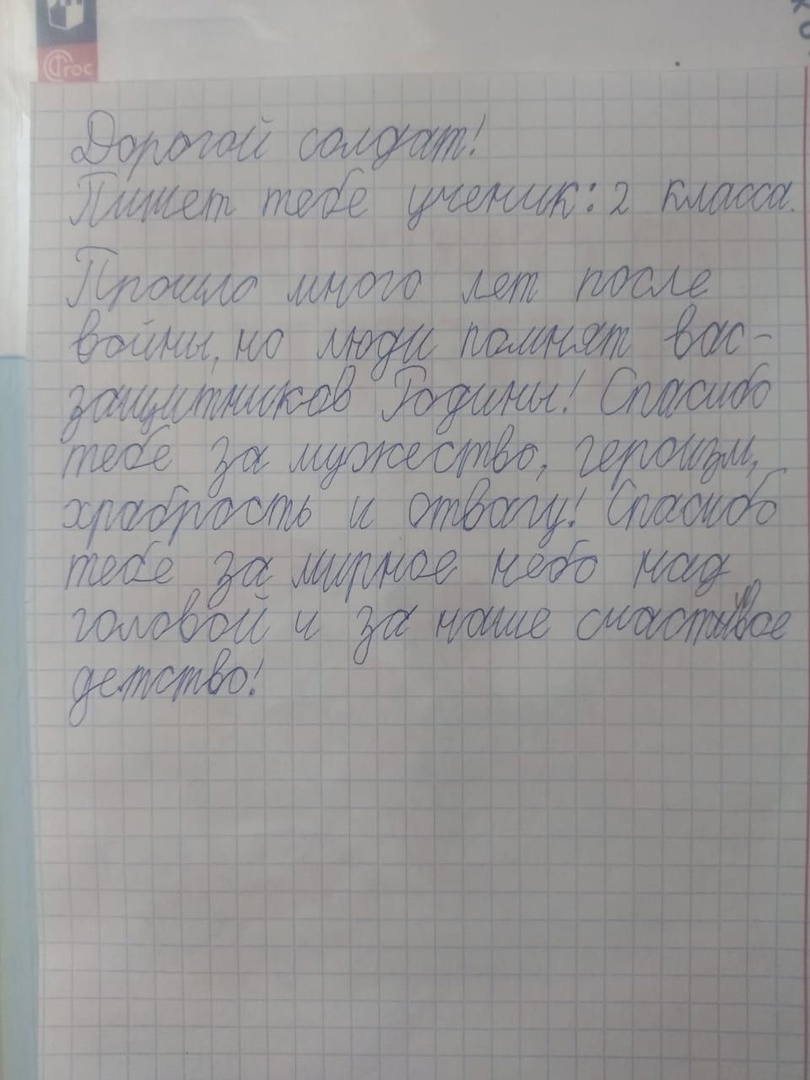 Фгос
Дорогой солдат!
Пишет тебе ученик: 2 класса.
Прошло много лет после
войны, но люди помнят вас-
защитников Родины! Спасибо
тебе за мужество, героизм,
храбрость и отвагу! Спасибо
тебе за мирное небо над
головой и за наше счастливое
детство!